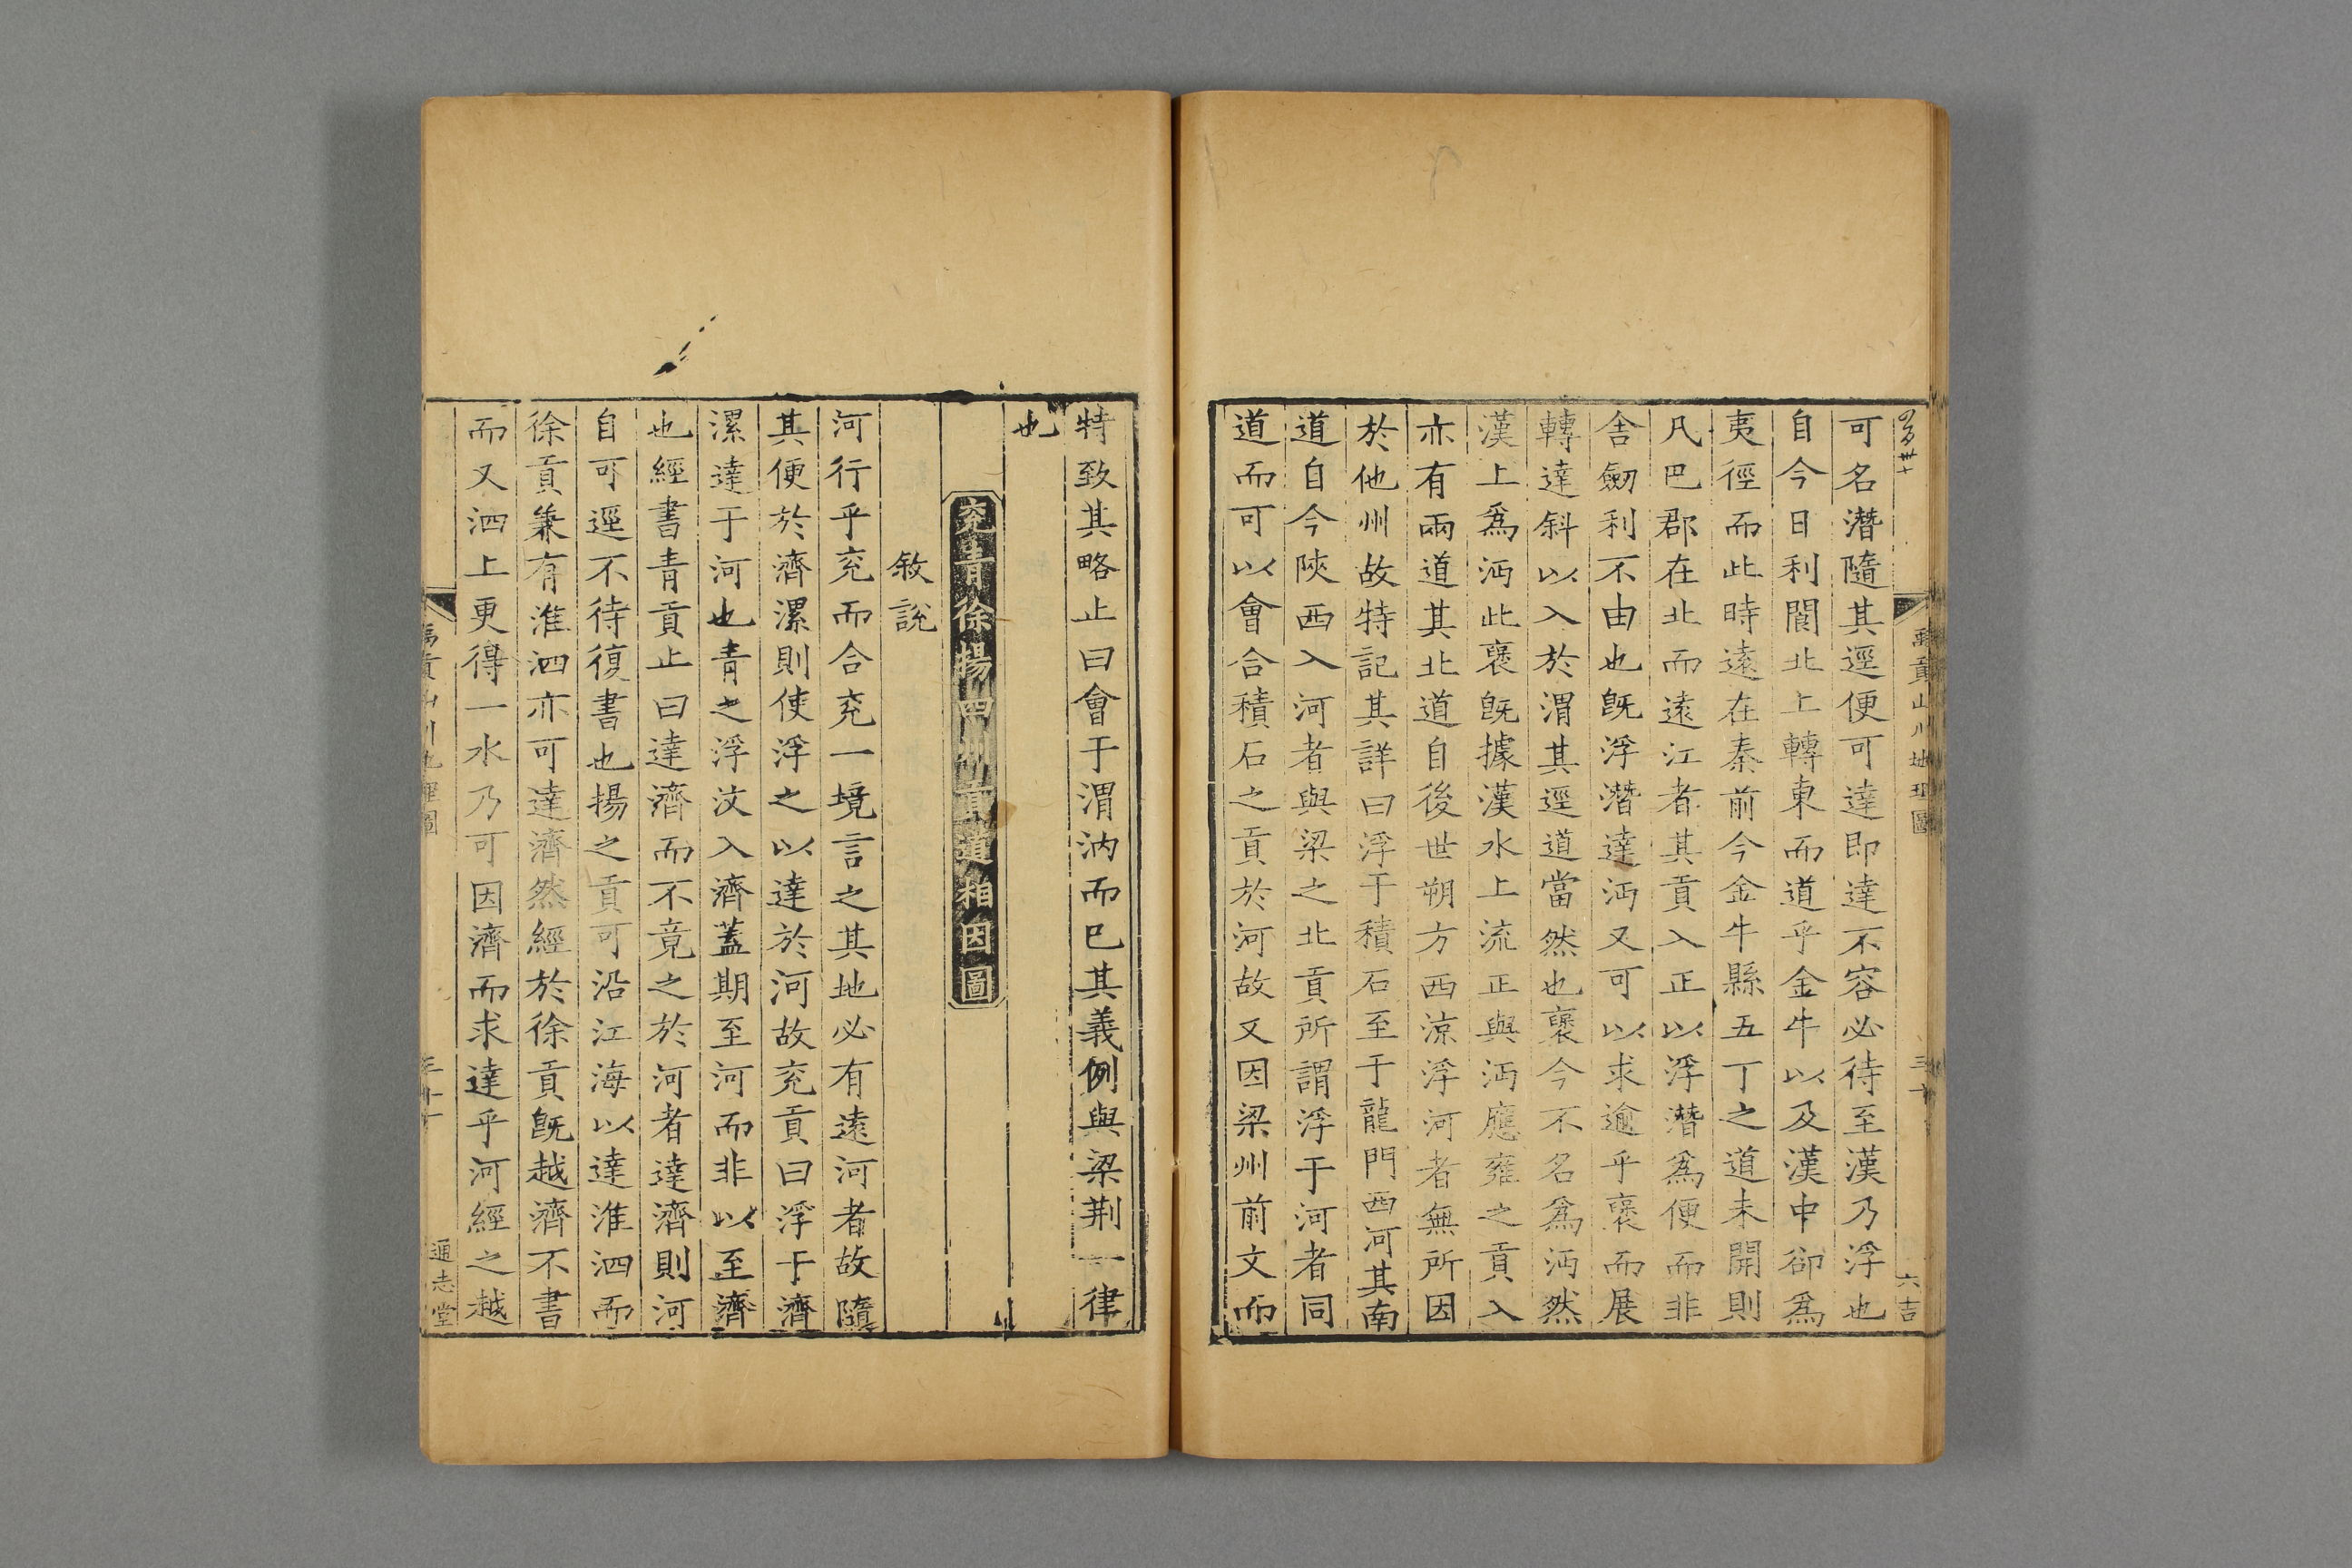 可名潛隨其逕便可達即達不容必待至漢乃浮也
自今日利閬北上轉東而道乎金牛以及漢中卻爲
夷徑而此時遠在秦前今金牛縣五丁之道未開則
凡巴郡在北而遠江者其貢入正以浮潛爲便而非
舍劒利不由也旣浮潛達沔又可以求逾乎褒而展
轉達斜以入於渭其逕道當然也褒今不名爲沔然
漢上爲沔此褒旣據漢水上流正與沔應雍之貢入
亦有兩道其北道自後世朔方西涼浮河者無所因
於他州故特記其詳曰浮于積石至于龍門西河其南
道自今陝西入河者與梁之北貢所謂浮于河者同
道而可以會合積石之貢於河故又因梁州前文而
禹貢山川地理圖
六吉
特致其略止曰會于渭汭而已其義例與梁荆一律
也
兖青徐揚四州貢道相因圖
敘說
河行乎兖而合兖一境言之其地必有遠河者故隨
其便於濟漯則使浮之以達於河故兖貢曰浮于濟
漯達于河也青之浮汶入濟蓋期至河而非以至濟
也經書青貢止曰達濟而不竟之於河者達濟則河
自可逕不待復書也揚之貢可沿江海以達淮泗而
徐貢兼有淮泗亦可達濟然經於徐貢旣越濟不書
而又泗上更得一水乃可因濟而求達乎河經之越
禹貢山川地理圖
通志堂